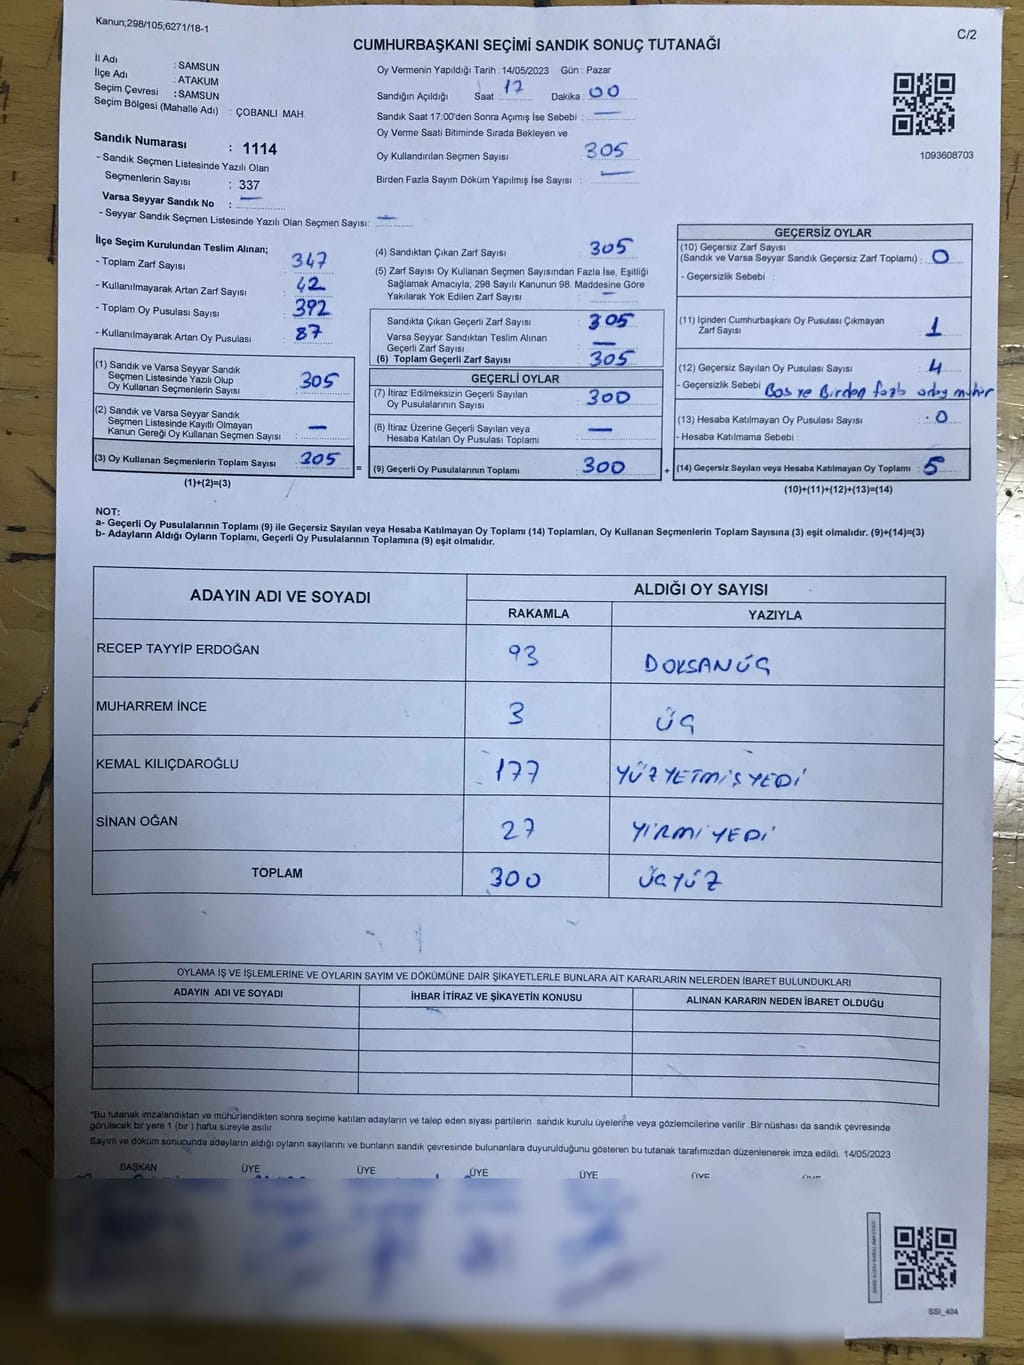 Kanun;298/105;6271/18-1
C/2
CUMHURBAŞKANI SEÇİMİ SANDIK SONUÇ TUTANAĞI
İl Adı : SAMSUN
İlçe Adı : ATAKUM
Seçim Çevresi : SAMSUN
Seçim Bölgesi (Mahalle Adı) : ÇOBANLI MAH
Sandık Numarası : 1114
- Sandık Seçmen Listesinde Yazılı Olan
Seçmenlerin Sayısı : 337
Varsa Seyyar Sandık No : —
- Seyyar Sandık Seçmen Listesinde Yazılı Olan Seçmen Sayısı: —
Oy Vermenin Yapıldığı Tarih : 14/05/2023 Gün : Pazar
Sandığın Açıldığı Saat : 17 Dakika : 00
Sandık Saat 17:00'den Sonra Açımış İse Sebebi : —
Oy Verme Saati Bitiminde Sırada Bekleyen ve
Oy Kullandırılan Seçmen Sayısı : 305
Birden Fazla Sayım Döküm Yapılmış İse Sayısı : —
1093608703
İlçe Seçim Kurulundan Teslim Alınan;
- Toplam Zarf Sayısı : 347
- Kullanılmayarak Artan Zarf Sayısı : 42
- Toplam Oy Pusulası Sayısı : 392
- Kullanılmayarak Artan Oy Pusulası : 87
(1) Sandık ve Varsa Seyyar Sandık
Seçmen Listesinde Yazılı Olup
Oy Kullanan Seçmenlerin Sayısı : 305
(2) Sandık ve Varsa Seyyar Sandık
Seçmen Listesinde Kayıtlı Olmayan
Kanun Gereği Oy Kullanan Seçmen Sayısı : —
(3) Oy Kullanan Seçmenlerin Toplam Sayısı : 305
(1)+(2)=(3)
(4) Sandıktan Çıkan Zarf Sayısı : 305
(5) Zarf Sayısı Oy Kullanan Seçmen Sayısından Fazla İse, Eşitliği
Sağlamak Amacıyla, 298 Sayılı Kanunun 98. Maddesine Göre
Yakılarak Yok Edilen Zarf Sayısı : —
Sandıkta Çıkan Geçerli Zarf Sayısı : 305
Varsa Seyyar Sandıktan Teslim Alınan
Geçerli Zarf Sayısı : —
(6) Toplam Geçerli Zarf Sayısı : 305
GEÇERLİ OYLAR
(7) İtiraz Edilmeksizin Geçerli Sayılan
Oy Pusulalarının Sayısı : 300
(8) İtiraz Üzerine Geçerli Sayılan veya
Hesaba Katılan Oy Pusulası Toplamı : —
= (9) Geçerli Oy Pusulalarının Toplamı : 300
GEÇERSİZ OYLAR
(10) Geçersiz Zarf Sayısı
(Sandık ve Varsa Seyyar Sandık Geçersiz Zarf Toplamı) : 0
- Geçersizlik Sebebi :
(11) İçinden Cumhurbaşkanı Oy Pusulası Çıkmayan
Zarf Sayısı : 1
(12) Geçersiz Sayılan Oy Pusulası Sayısı : 4
- Geçersizlik Sebebi : Boş ve Birden fazla aday mühür
(13) Hesaba Katılmayan Oy Pusulası Sayısı : 0
- Hesaba Katılmama Sebebi :
+ (14) Geçersiz Sayılan veya Hesaba Katılmayan Oy Toplamı : 5
(10)+(11)+(12)+(13)=(14)
NOT:
a- Geçerli Oy Pusulalarının Toplamı (9) ile Geçersiz Sayılan veya Hesaba Katılmayan Oy Toplamı (14) Toplamları, Oy Kullanan Seçmenlerin Toplam Sayısına (3) eşit olmalıdır. (9)+(14)=(3)
b- Adayların Aldığı Oyların Toplamı, Geçerli Oy Pusulalarının Toplamına (9) eşit olmalıdır.
ADAYIN ADI VE SOYADI
ALDIĞI OY SAYISI
RAKAMLA YAZIYLA
RECEP TAYYİP ERDOĞAN 93 DOKSANÜÇ
MUHARREM İNCE 3 ÜÇ
KEMAL KILIÇDAROĞLU 177 YÜZYETMİŞYEDİ
SİNAN OĞAN 27 YİRMİYEDİ
TOPLAM 300 ÜÇYÜZ
OYLAMA İŞ VE İŞLEMLERİNE VE OYLARIN SAYIM VE DÖKÜMÜNE DAİR ŞİKAYETLERLE BUNLARA AİT KARARLARIN NELERDEN İBARET BULUNDUKLARI
ADAYIN ADI VE SOYADI İHBAR İTİRAZ VE ŞİKAYETİN KONUSU ALINAN KARARIN NEDEN İBARET OLDUĞU
*Bu tutanak imzalandıktan ve mühürlendikten sonra seçime katılan adayların ve talep eden siyasi partilerin sandık kurulu üyelerine veya gözlemcilerine verilir .Bir nüshası da sandık çevresinde
görülecek bir yere 1 (bir ) hafta süreyle asılır
Sayım ve döküm sonucunda adayların aldığı oyların sayılarını ve bunların sandık çevresinde bulunanlara duyurulduğunu gösteren bu tutanak tarafımızdan düzenlenerek imza edildi. 14/05/2023
BAŞKAN ÜYE ÜYE ÜYE ÜYE ÜYE ÜYE
SSI_404